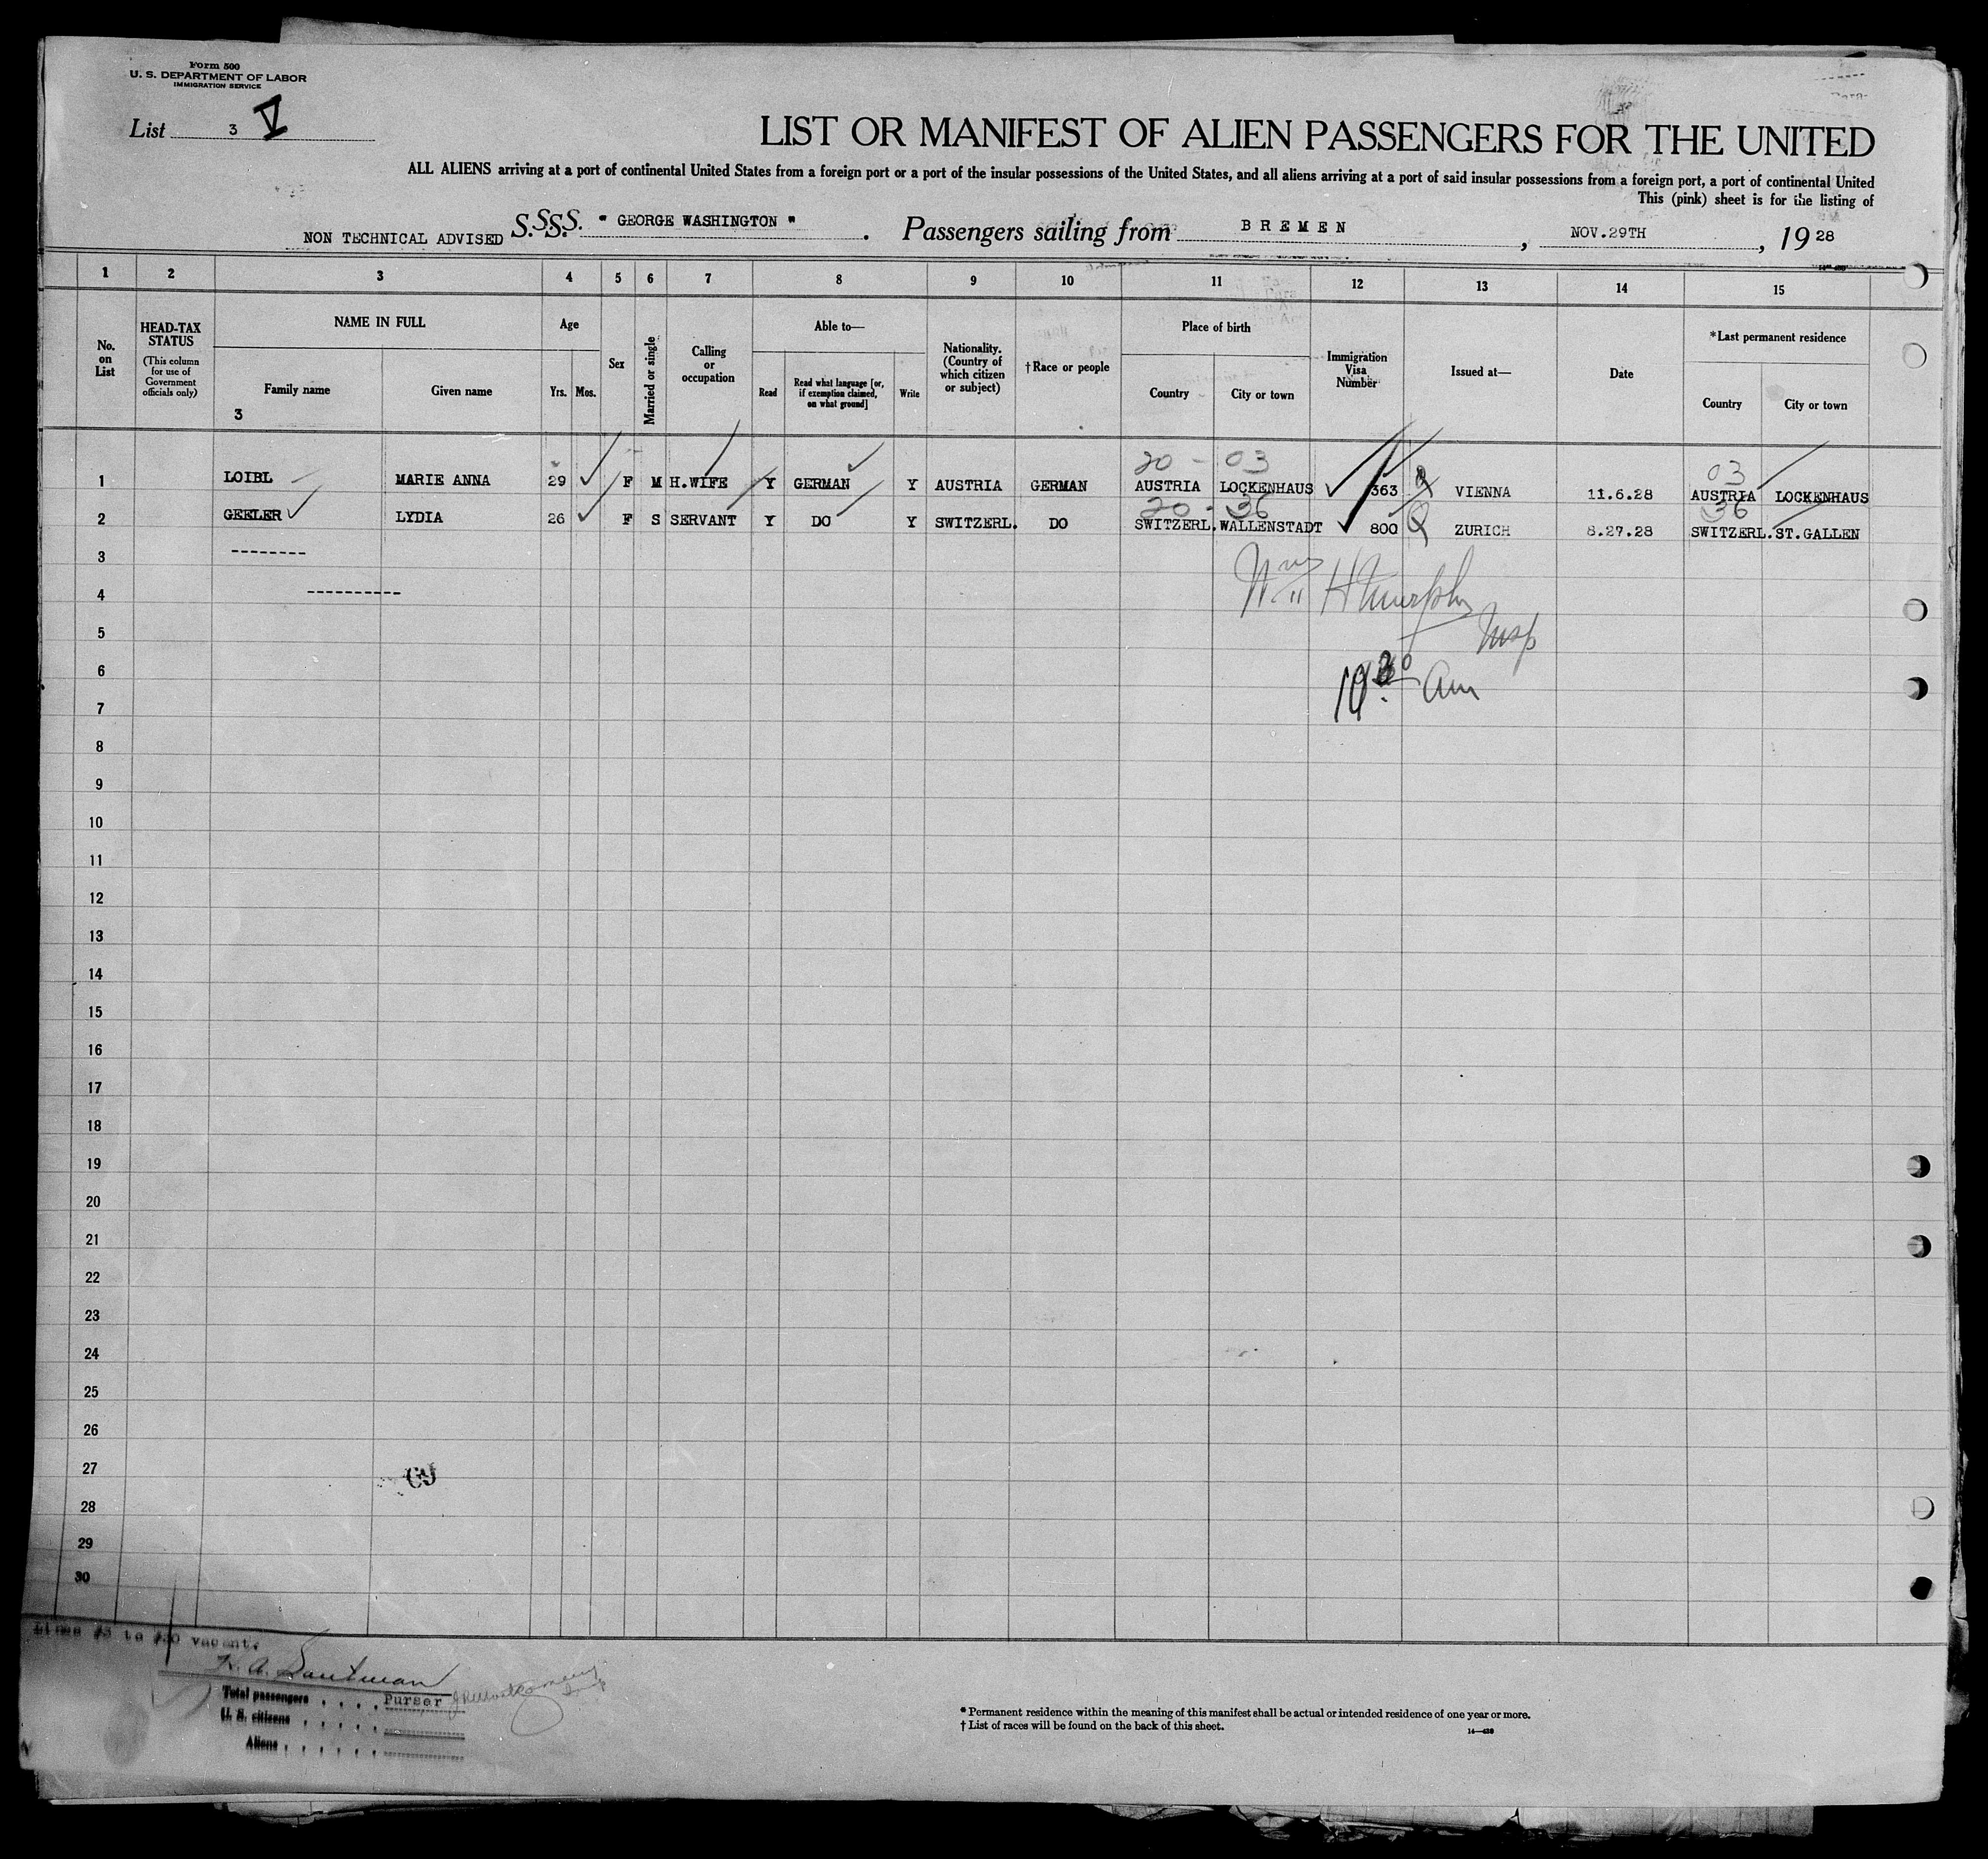 Form 500
U. S. DEPARTMENT OF LABOR
IMMIGRATION SERVICE
List 3 V
LIST OR MANIFEST OF ALIEN PASSENGERS FOR THE UNITED
ALL ALIENS arriving at a port of continental United States from a foreign port or a port of the insular possessions of the United States, and all aliens arriving at a port of said insular possessions from a foreign port, a port of continental United
This (pink) sheet is for the listing of
NON TECHNICAL ADVISED S.S.S.S. " GEORGE WASHINGTON " . Passengers sailing from BREMEN , NOV.29TH , 19 28
1 2 3 4 5 6 7 8 9 10 11 12 13 14 15
No. on List
HEAD-TAX STATUS
(This column for use of Government officials only)
NAME IN FULL
Family name
3
Given name
Age
Yrs. Mos.
Sex
Married or single
Calling or occupation
Able to—
Read
Read what language [or, if exemption claimed, on what ground]
Write
Nationality. (Country of which citizen or subject)
†Race or people
Place of birth
Country
City or town
Immigration Visa Number
Issued at—
Date
*Last permanent residence
Country
City or town
20 - 03 03
1 LOIBL MARIE ANNA 29 F M H.WIFE Y GERMAN Y AUSTRIA GERMAN AUSTRIA LOCKENHAUS 363 VIENNA 11.6.28 AUSTRIA LOCKENHAUS
20 - 36 36
2 GEELER LYDIA 26 F S SERVANT Y DO Y SWITZERL. DO SWITZERL. WALLENSTADT 800 ZURICH 8.27.28 SWITZERL. ST.GALLEN
3 --------
4 ----------
Wm H Murphy
Insp
5
6
10 30 Am
7
8
9
10
11
12
13
14
15
16
17
18
19
20
21
22
23
24
25
26
27
28
29
30
Lines #3 to #30 vacant.
Total passengers . . . . Purser
U. S. citizens . . . . .
Aliens . . . . . .
* Permanent residence within the meaning of this manifest shall be actual or intended residence of one year or more.
† List of races will be found on the back of this sheet.
14—430